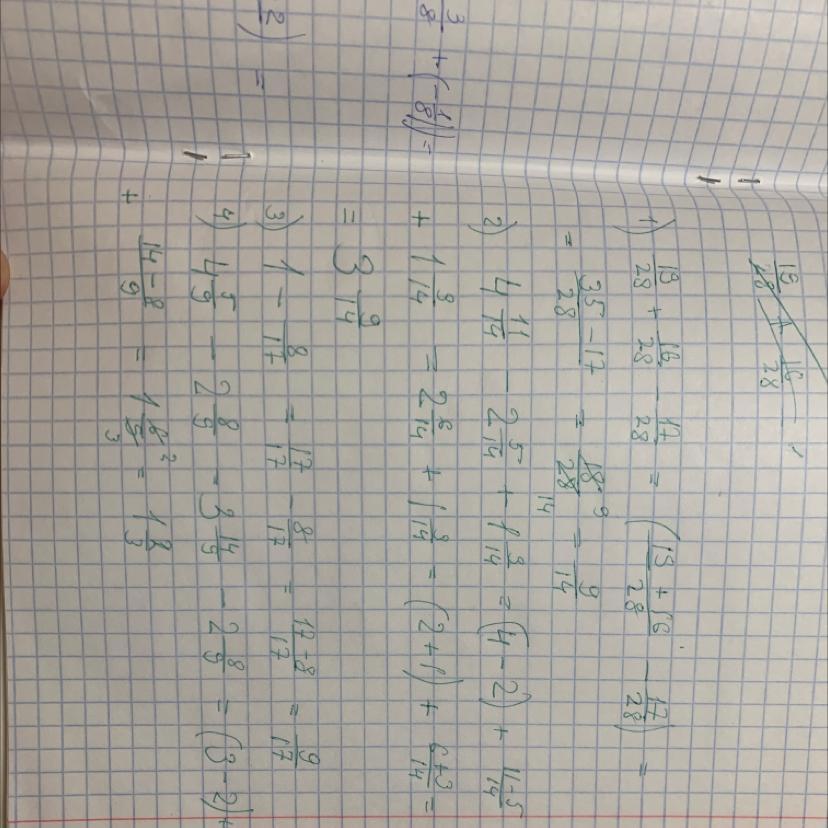 3/8 + (-1/8) =
2) =
19/28 + 16/28
1) 19/28 + 16/28 - 17/28 = (19 + 16/28 - 17/28) =
= 35 - 17/28 = 18 9/28 14 = 9/14
2) 4 11/14 - 2 5/14 + 1 3/14 = (4 - 2) + 11-5/14
+ 1 3/14 = 2 6/14 + 1 3/14 = (2+1) + 6+3/14 =
= 3 9/14
3) 1 - 8/17 = 17/17 - 8/17 = 17-8/17 = 9/17
4) 4 5/9 - 2 8/9 - 3 14/9 - 2 8/9 = (3-2) +
+ 14-8/9 = 1 6 2/9 3 = 1 2/3